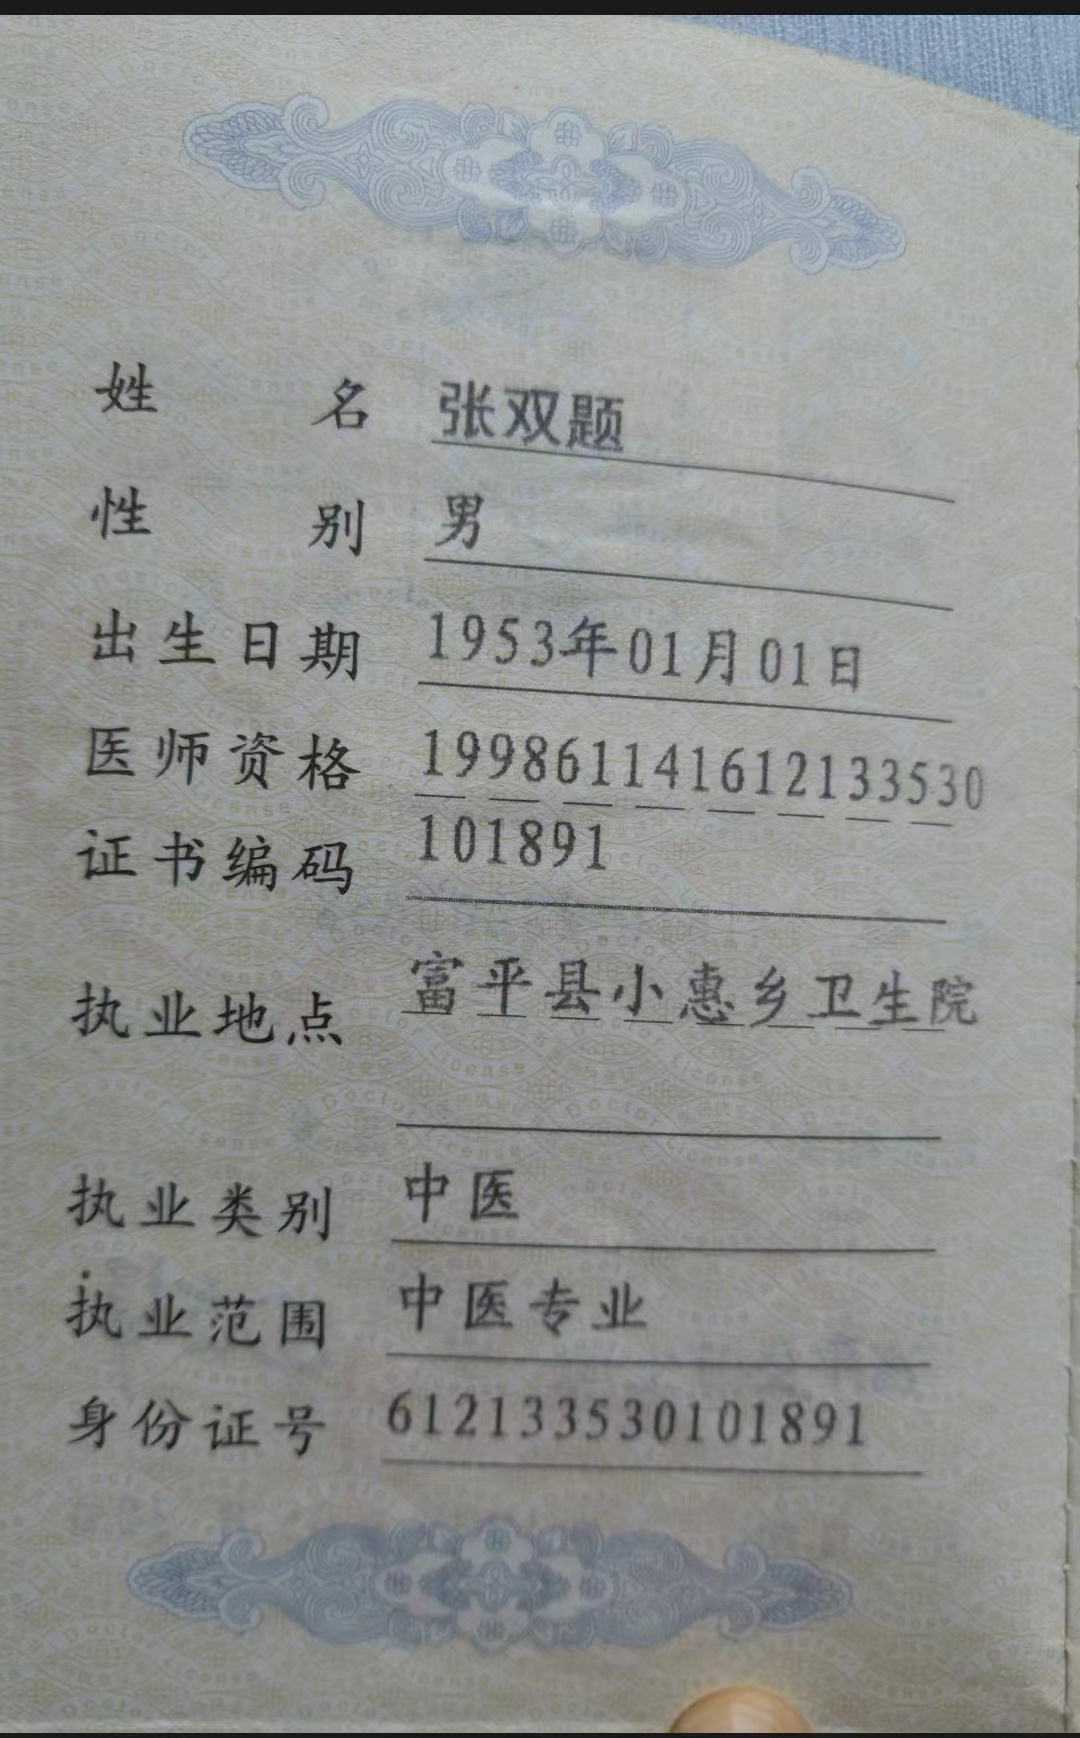 姓名 张双题
性别 男
出生日期 1953年01月01日
医师资格 199861141612133530
证书编码 101891
执业地点 富平县小惠乡卫生院
执业类别 中医
执业范围 中医专业
身份证号 612133530101891